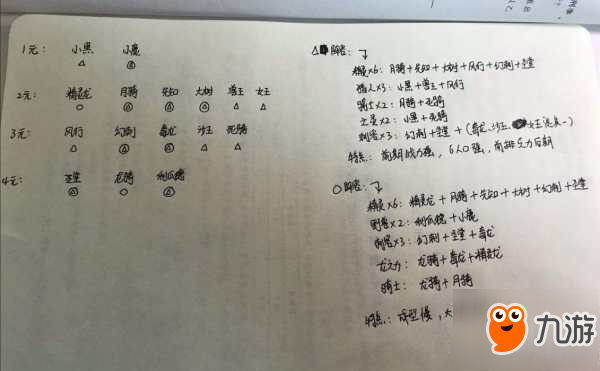 1元: 小黑 小鹿
△
2元: 精灵龙 月骑 先知 大树 兽王 女王
○ △ △
3元: 风行 幻刺 毒龙 沙王 死骑
△ △ △
4元: 圣堂 龙骑 利爪德
○
△阵容:
精灵×6: 月骑+先知+大树+风行+幻刺+圣堂
猎人×3: 小黑+兽王+风行
骑士×2: 月骑+死骑
亡灵×2: 小黑+死骑
刺客×3: 幻刺+圣堂+(毒龙、沙王、女王选其一)
特点: 前期战力强, 6人口强, 前排乏力后期
○阵容:
精灵×6: 精灵龙+月骑+先知+大树+幻刺+圣堂
德×2: 利爪德+小鹿
刺客×3: 幻刺+圣堂+毒龙
龙之力: 龙骑+毒龙+精灵龙
骑士: 龙骑+月骑
特点: 成型慢, 大
九游